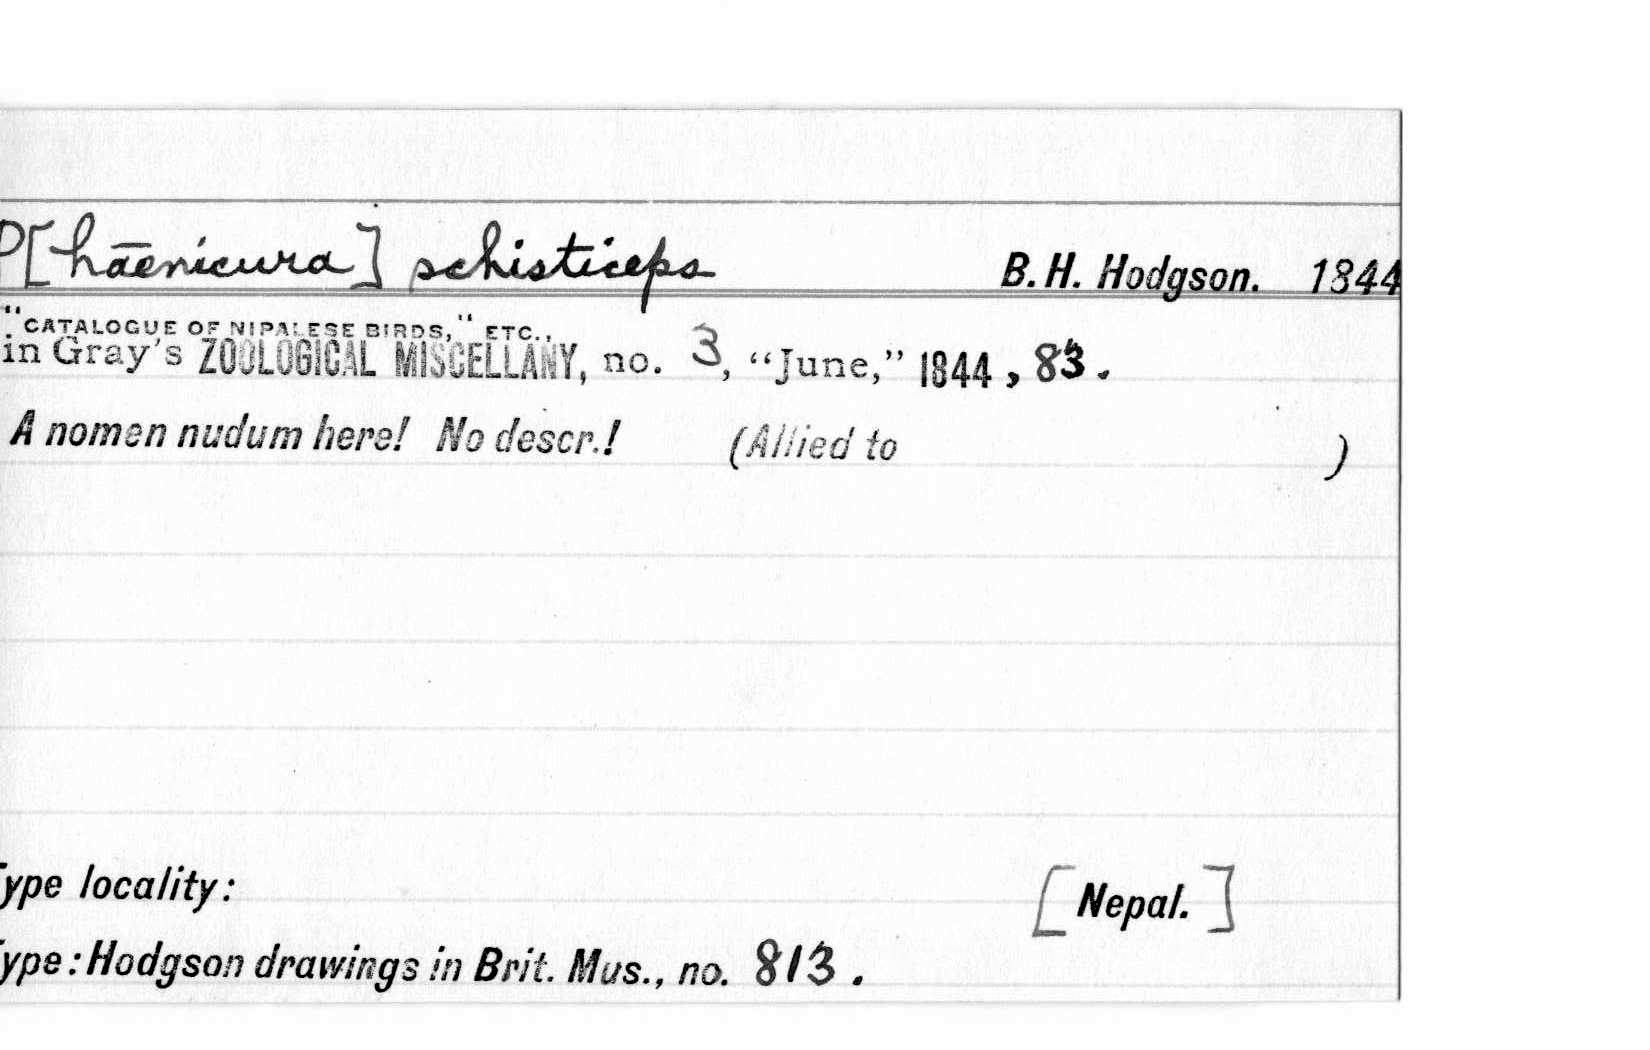 P[hāenicura] schisticeps B. H. Hodgson. 1844
"CATALOGUE OF NIPALESE BIRDS," ETC.,
in Gray's ZOOLOGICAL MISCELLANY, no. 3, “June,” 1844, 83.
A nomen nudum here! No descr.! (Allied to )
Type locality: [Nepal.]
Type: Hodgson drawings in Brit. Mus., no. 813.